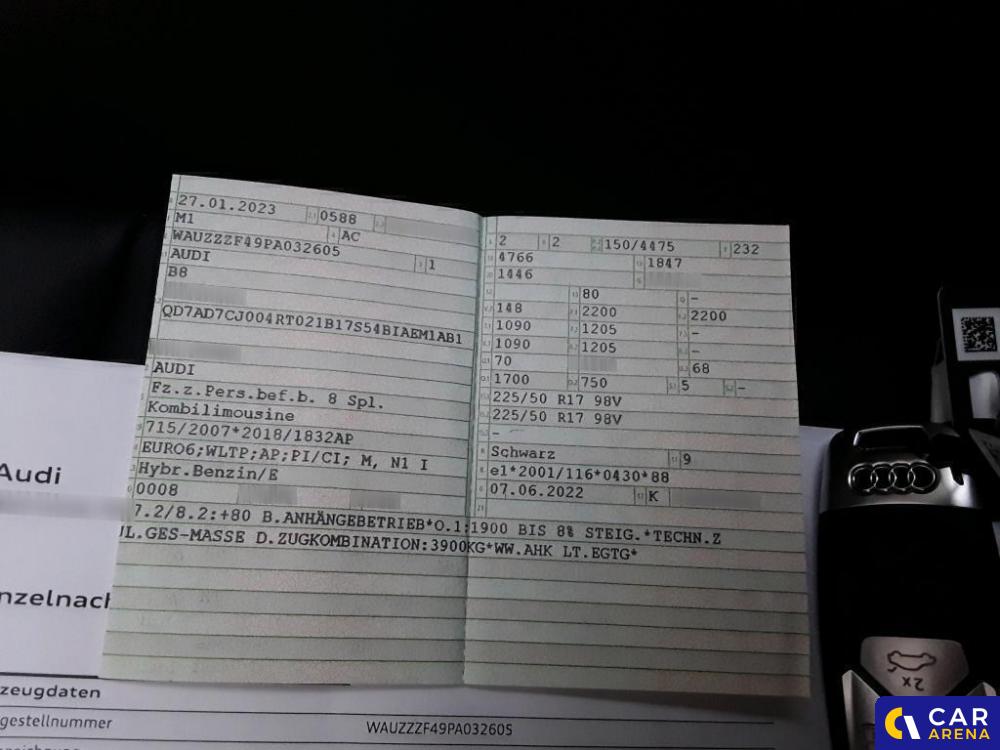 27.01.2023 0588
M1 AC
WAUZZZF49PA032605
AUDI 1
B8
QD7AD7CJ004RT021B17S54BIAEM1AB1
AUDI
Fz.z.Pers.bef.b. 8 Spl.
Kombilimousine
715/2007*2018/1832AP
EURO6;WLTP;AP;PI/CI; M, N1 I
Hybr.Benzin/E
0008
2 2 150/4475 232
4766 1847
1446
80 -
148 2200 2200
1090 1205 -
1090 1205 -
70 68
1700 750 5 -
225/50 R17 98V
225/50 R17 98V
-
Schwarz 9
e1*2001/116*0430*88
07.06.2022 K
7.2/8.2:+80 B.ANHÄNGEBETRIEB*O.1:1900 BIS 8% STEIG.*TECHN.Z
UL.GES-MASSE D.ZUGKOMBINATION:3900KG*WW.AHK LT.EGTG*
Audi
nzelnach
zeugdaten
gestellnummer WAUZZZF49PA032605
2x
CAR
ARENA